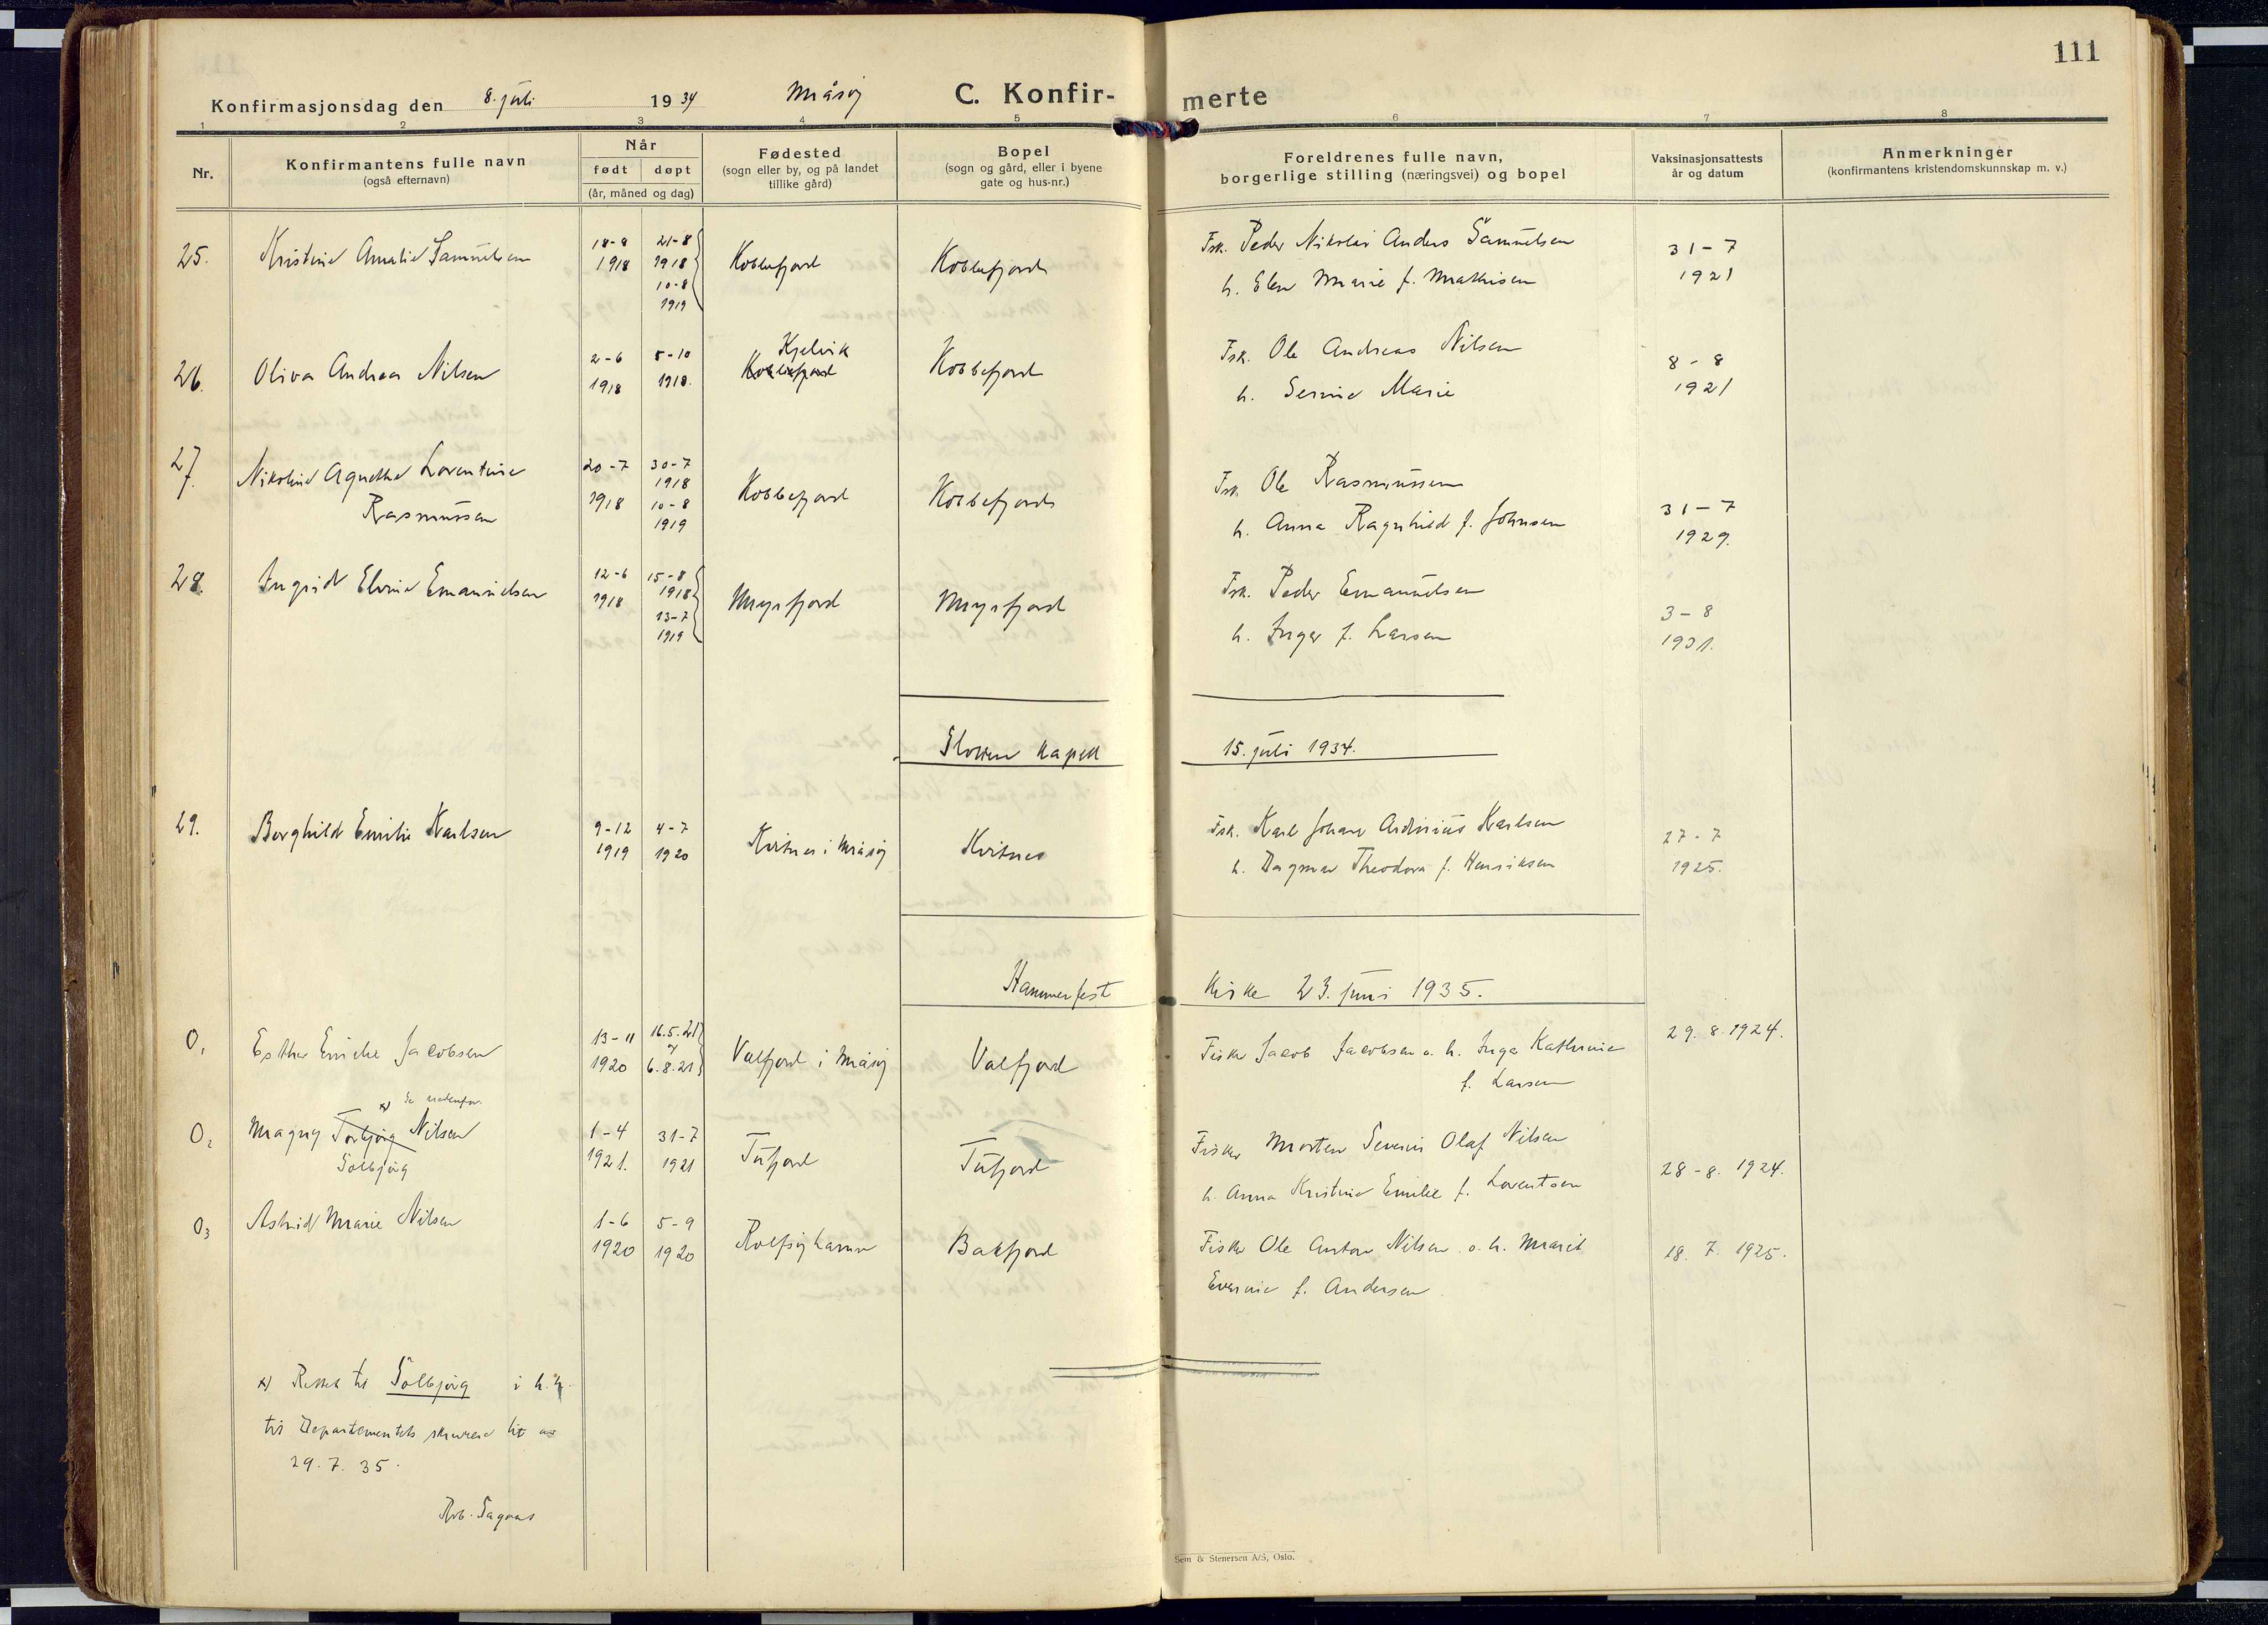 111
Konfirmasjonsdag den 8. juli 1934 Måsøy C. Konfirmerte
1 2 3 4 5 6 7 8
Nr.
Konfirmantens fulle navn
(også efternavn)
Når
født døpt
(år, måned og dag)
Fødested
(sogn eller by, og på landet
tillike gård)
Bopel
(sogn og gård, eller i byene
gate og hus-nr.)
Foreldrenes fulle navn,
borgerlige stilling (næringsvei) og bopel
Vaksinasjonsattests
år og datum
Anmerkninger
(konfirmantens kristendomskunnskap m. v.)
25. Kristine Amalie Samuelsen 18-8 1918 21-8 1918 10-8 1919 Kobbefjord Kobbefjord
Fsk. Peder Nikolai Anders Samuelsen
h. Elen Marie f. Mathisen
31-7
1921
26. Oliva Andrea Nilsen 2-6 1918 5-10 1918. Kjelvik Kobbefjord Kobbefjord
Fsk. Ole Andreas Nilsen
h. Serine Marie
8-8
1921
27. Nikoline Agnethe Lorentine
Rasmussen
20-7 1918 30-7 1918 10-8 1919 Kobbefjord Kobbefjord
Fsk. Ole Rasmussen
h. Anna Ragnhild f. Johnsen
31-7
1929.
28. Ingrid Elvine Emanuelsen 12-6 1918 15-8 1918 13-7 1919 Myrfjord Myrfjord
Fsk. Peder Emanuelsen
h. Inger f. Larsen
3-8
1931.
kapell 15. juli 1934.
29. Borghild Emilie Karlsen 9-12 1919 4-7 1920 Kvitnes i Måsøy Kvitnes
Fsk. Karl Johan Karlsen
h. Dagmar Theodora f. Henriksen
27-7
1925.
Hammerfest Kirke 23. juni 1935.
0, Esther Emilie Jacobsen 13-11 1920 16.5.21 og 6.8.21 Valfjord i Måsøy Valfjord
Fisker Jacob Jacobsen o. h. Inga Kathrine
f. Larsen
29. 8. 1924.
x) Se nedenfor.
02 Magny Torbjørg Nilsen
Solbjørg
1-4 1921. 31-7 1921 Tufjord Tufjord
Fisker Morten Severin Olaf Nilsen
h. Anna Kristine Emilie f. Lorentsen
28-8. 1924.
03 Astrid Marie Nilsen 1-6 1920 5-9 1920 Rolfsøyhamn Bakfjord
Fisker Ole Anton Nilsen o. h. Marit
f. Andersen
18. 7. 1925.
x) Rettet til Solbjørg i h.h.
til Departementets skrivelse hit av
29. 7. 35.
Sem & Stenersen A/S, Oslo.